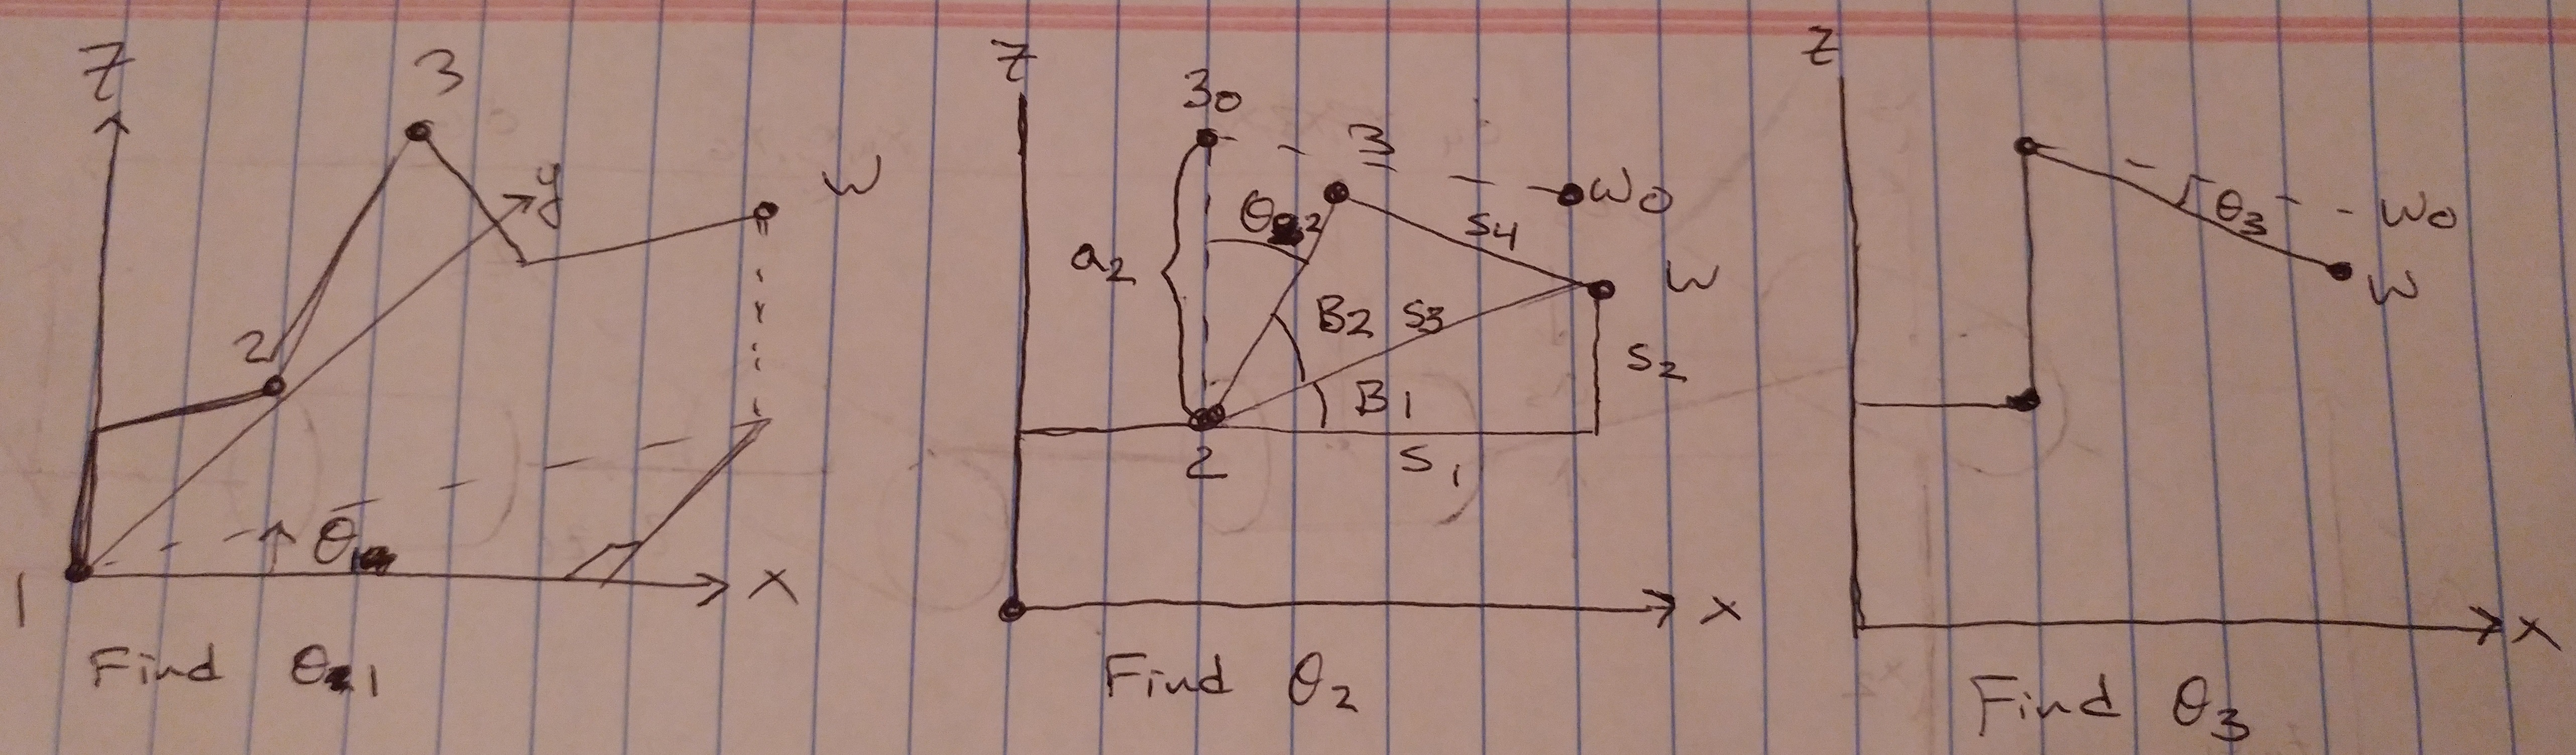 Z
3
y
W
2
θ1
1
X
Find θ1
Z
30
3
W0
θ2
S4
a2
B2
S3
W
S2
B1
2
S1
X
Find θ2
Z
θ3
W0
W
X
Find θ3